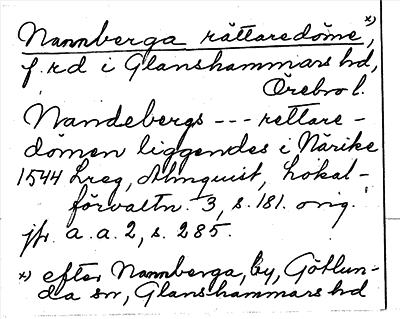 Nannberga rättaredöme *),
f. rd i Glanshammars hd,
Örebro l.
Nandebergs --- rettare-
dömen liggendes i Närike
1544 Lreg, Almquist, Lokal-
förvaltn. 3, s. 181. orig.
jfr a.a. 2, s. 285.
*) efter Nannberga, by, Götlun-
da sn, Glanshammars hd